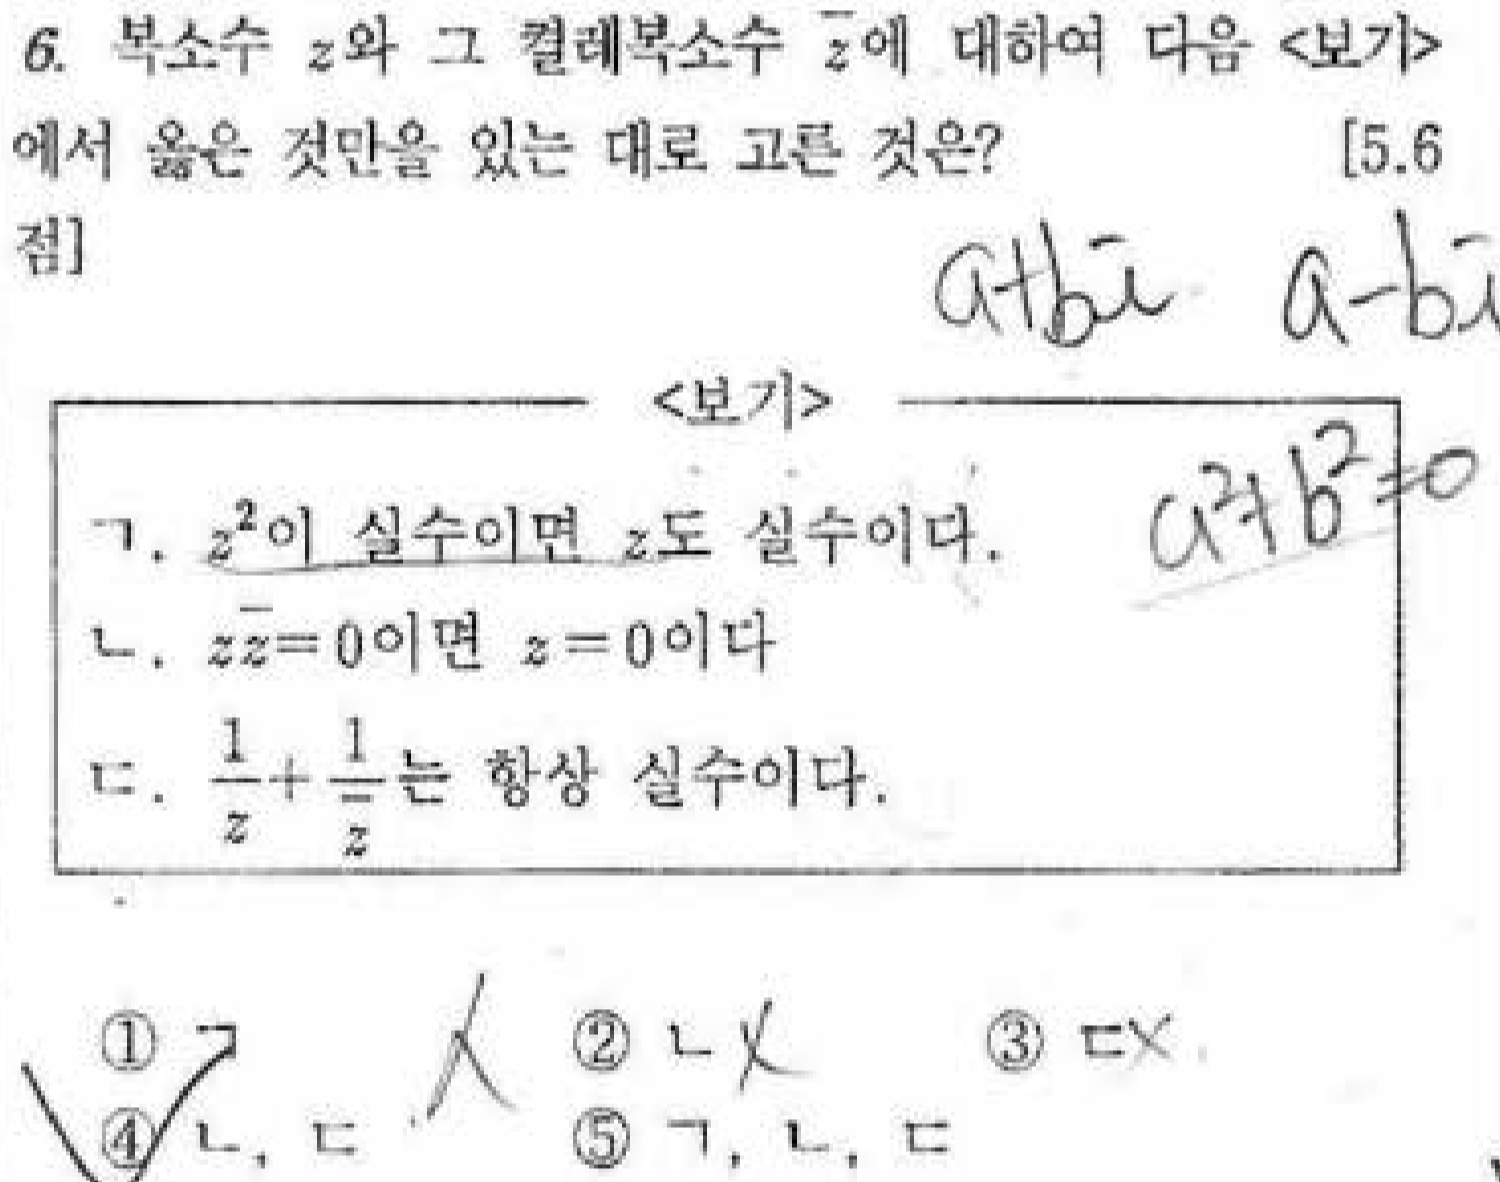 6. 복소수 z와 그 켤레복소수 z̄에 대하여 다음 <보기>
에서 옳은 것만을 있는 대로 고른 것은? [5.6
점]
a+bi a-bi
<보기>
a²+b²=0
ㄱ. z²이 실수이면 z도 실수이다.
ㄴ. zz̄=0이면 z=0이다
ㄷ. 1/z + 1/z̄는 항상 실수이다.
① ㄱ ② ㄴ ③ ㄷ
④ ㄴ, ㄷ ⑤ ㄱ, ㄴ, ㄷ